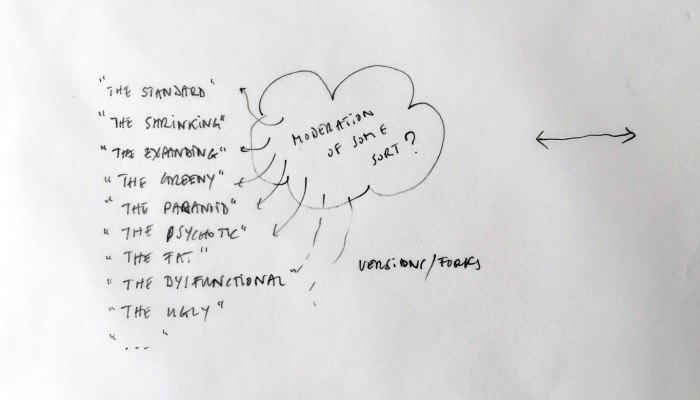 "THE STANDARD"
"THE SHRINKING"
"THE EXPANDING"
"THE GREENY"
"THE PARANOID"
"THE PSYCHOTIC"
"THE FAT"
"THE DYSFUNCTIONAL"
"THE UGLY"
"... "
MODERATION
OF SOME
SORT?
VERSIONS/FORKS